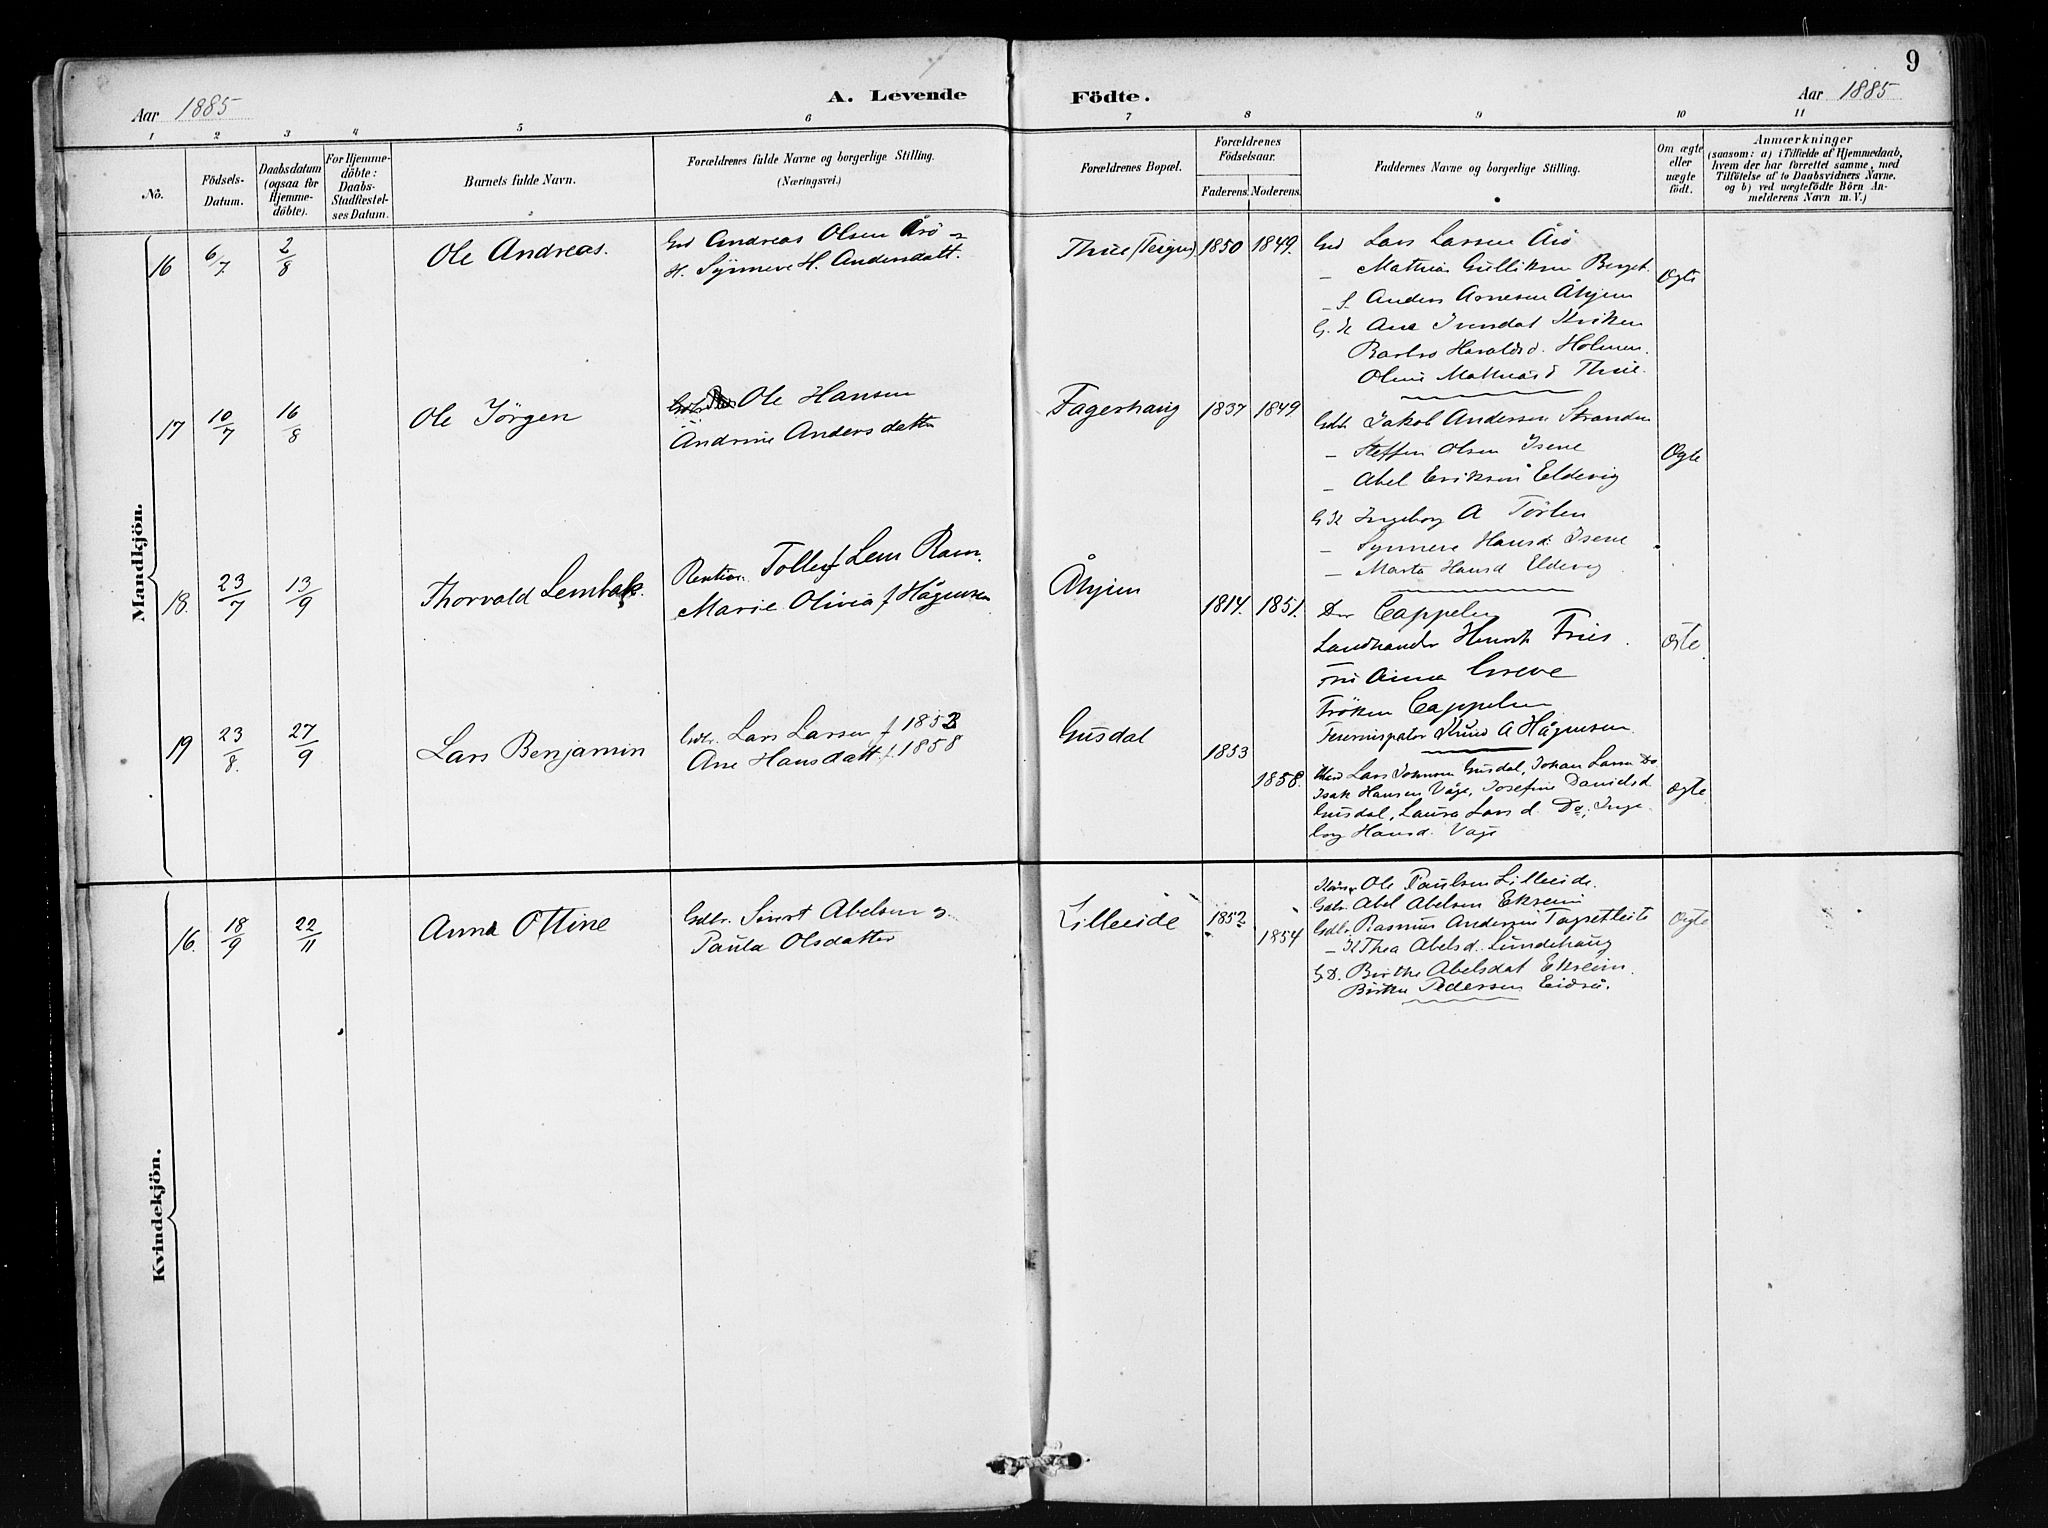 9
Aar 1885
A. Levende Födte.
Aar 1885
1 2 3 4 5 6 7 8 9 10 11
No.
Födsels-Datum.
Daabsdatum (ogsaa for Hjemme-döbte).
For Hjemme-döbte: Daabs-Stadfæstel-ses Datum.
Barnets fulde Navn.
Forældrenes fulde Navne og borgerlige Stilling.
(Næringsvei.)
Forældrenes Bopæl.
Forældrenes Födselsaar.
Faderens. Moderens.
Faddernes Navne og borgerlige Stilling.
Om ægte eller uægte födt.
Anmærkninger
(saasom: a) i Tilfælde af Hjemmedaab, hvem der har forrettet samme, med Tilföielse af to Daabsvidners Navne, og b) ved uægtefödte Börn An-melderens Navn m. V.)
Mandkjön.
16 6/7 2/8 Ole Andreas.
Andreas Olsen Årö
H. Synneve H. Andersdatt.
Thue (Teigen) 1850 1849.
Lars Larsen Årö
Mathias Gulliksen Berget
S. Anders Arnesen Åhjem
G. K. Ana Iversdat
Barbro Haraldsd. Holmen.
Oline Mathiasd Thue.
Ægte
17 10/7 16/8 Ole Jörgen
Ole Hansen
Andrine Andersdatter
Fagerhaug 1837 1849
Gdbr. Jakob Andersen Stranden
Steffen Olsen Isene
Abel Eriksen Eldevig
G K Ingeborg A
Synneve Hansd. Isene
Marta Hansd Eldevig
Ægte
18. 23/7 13/9 Thorvald Lembak.
Tollef Lem
Marie Olivia f Hågensen
Åhjem
1814. 1851.
Dr Cappelen
Landhandler Henrik Fries.
Fru Anna Greve
Fröken Cappelen
Knud A Hågensen.
ægte
19 23/8. 27/9 Lars Benjamin
Gdbr. Lars Larsen f 1853
Ane Hansdatt. f. 1858
Gusdal
1853
1858.
Lars Johnsen Gusdal, Johan Larsen Do
Isak Hansen Våge, Josefine Danielsd.
Gusdal, Laura Larsd. Do, Inge
borg Hansd. Våge
ægte
Kvindekjön.
16. 18/9 22/11 Anna Ottine
Gdbr. Sivert Abelsen og
Paula Olsdatter
Lilleeide 1852
1854
Ole Paulsen Lilleeide.
Gdbr. Abel Abelsen Ekrem
Gdbr. Rasmus Andersen
K Thea Abelsd. Lundehaug
G D. Birthe Abelsdat Ekreim.
Birthe Pedersen
Ægte